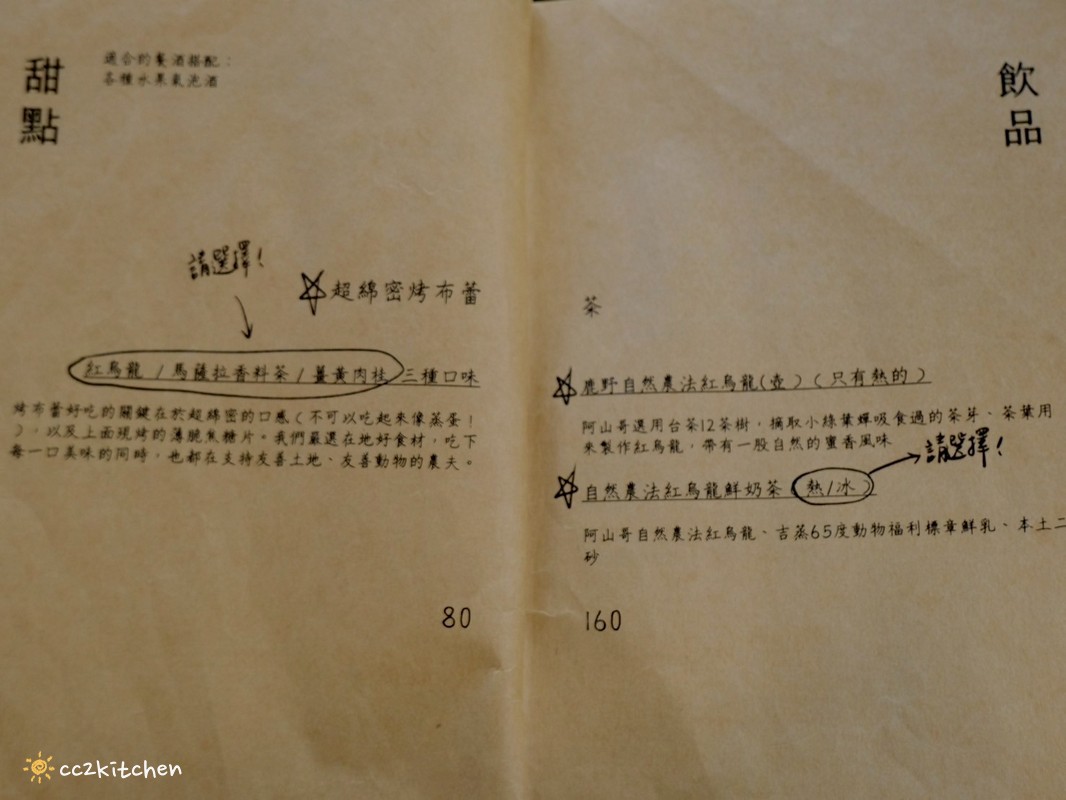 甜點
適合的餐酒搭配：
各種水果氣泡酒
請選擇！
超綿密烤布蕾
紅烏龍 / 馬薩拉香料茶 / 薑黃肉桂 三種口味
烤布蕾好吃的關鍵在於超綿密的口感(不可以吃起來像蒸蛋！
)，以及上面現烤的薄脆焦糖片。我們嚴選在地好食材，吃下
每一口美味的同時，也都在支持友善土地、友善動物的農夫。
80
飲品
茶
鹿野自然農法紅烏龍(壺)(只有熱的)
阿山哥選用台茶12茶樹，摘取小綠葉蟬吸食過的茶芽、茶葉用
來製作紅烏龍，帶有一股自然的蜜香風味
請選擇！
自然農法紅烏龍鮮奶茶 熱/冰
阿山哥自然農法紅烏龍、吉蒸65度動物福利標章鮮乳、本土二
砂
160
cc2kitchen